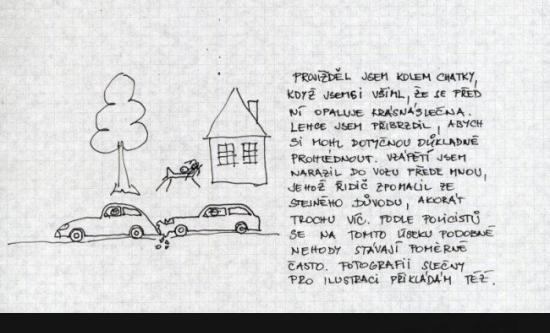 PROJÍŽDĚL JSEM KOLEM CHATKY,
KDYŽ JSEM SI VŠIML, ŽE SE PŘED
NÍ OPALUJE KRÁSNÁ SLEČNA.
LEHCE JSEM PŘIBRZDIL, ABYCH
SI MOHL DOTYČNOU DŮKLADNĚ
PROHLÉDNOUT. VZÁPĚTÍ JSEM
NARAZIL DO VOZU PŘEDE MNOU,
JEHOŽ ŘIDIČ ZPOMALIL ZE
STEJNÉHO DŮVODU, AKORÁT
TROCHU VÍC. PODLE POLICISTŮ
SE NA TOMTO ÚSEKU PODOBNÉ
NEHODY STÁVAJÍ POMĚRNĚ
ČASTO. FOTOGRAFII SLEČNY
PRO ILUSTRACI PŘIKLÁDÁM TÉŽ.